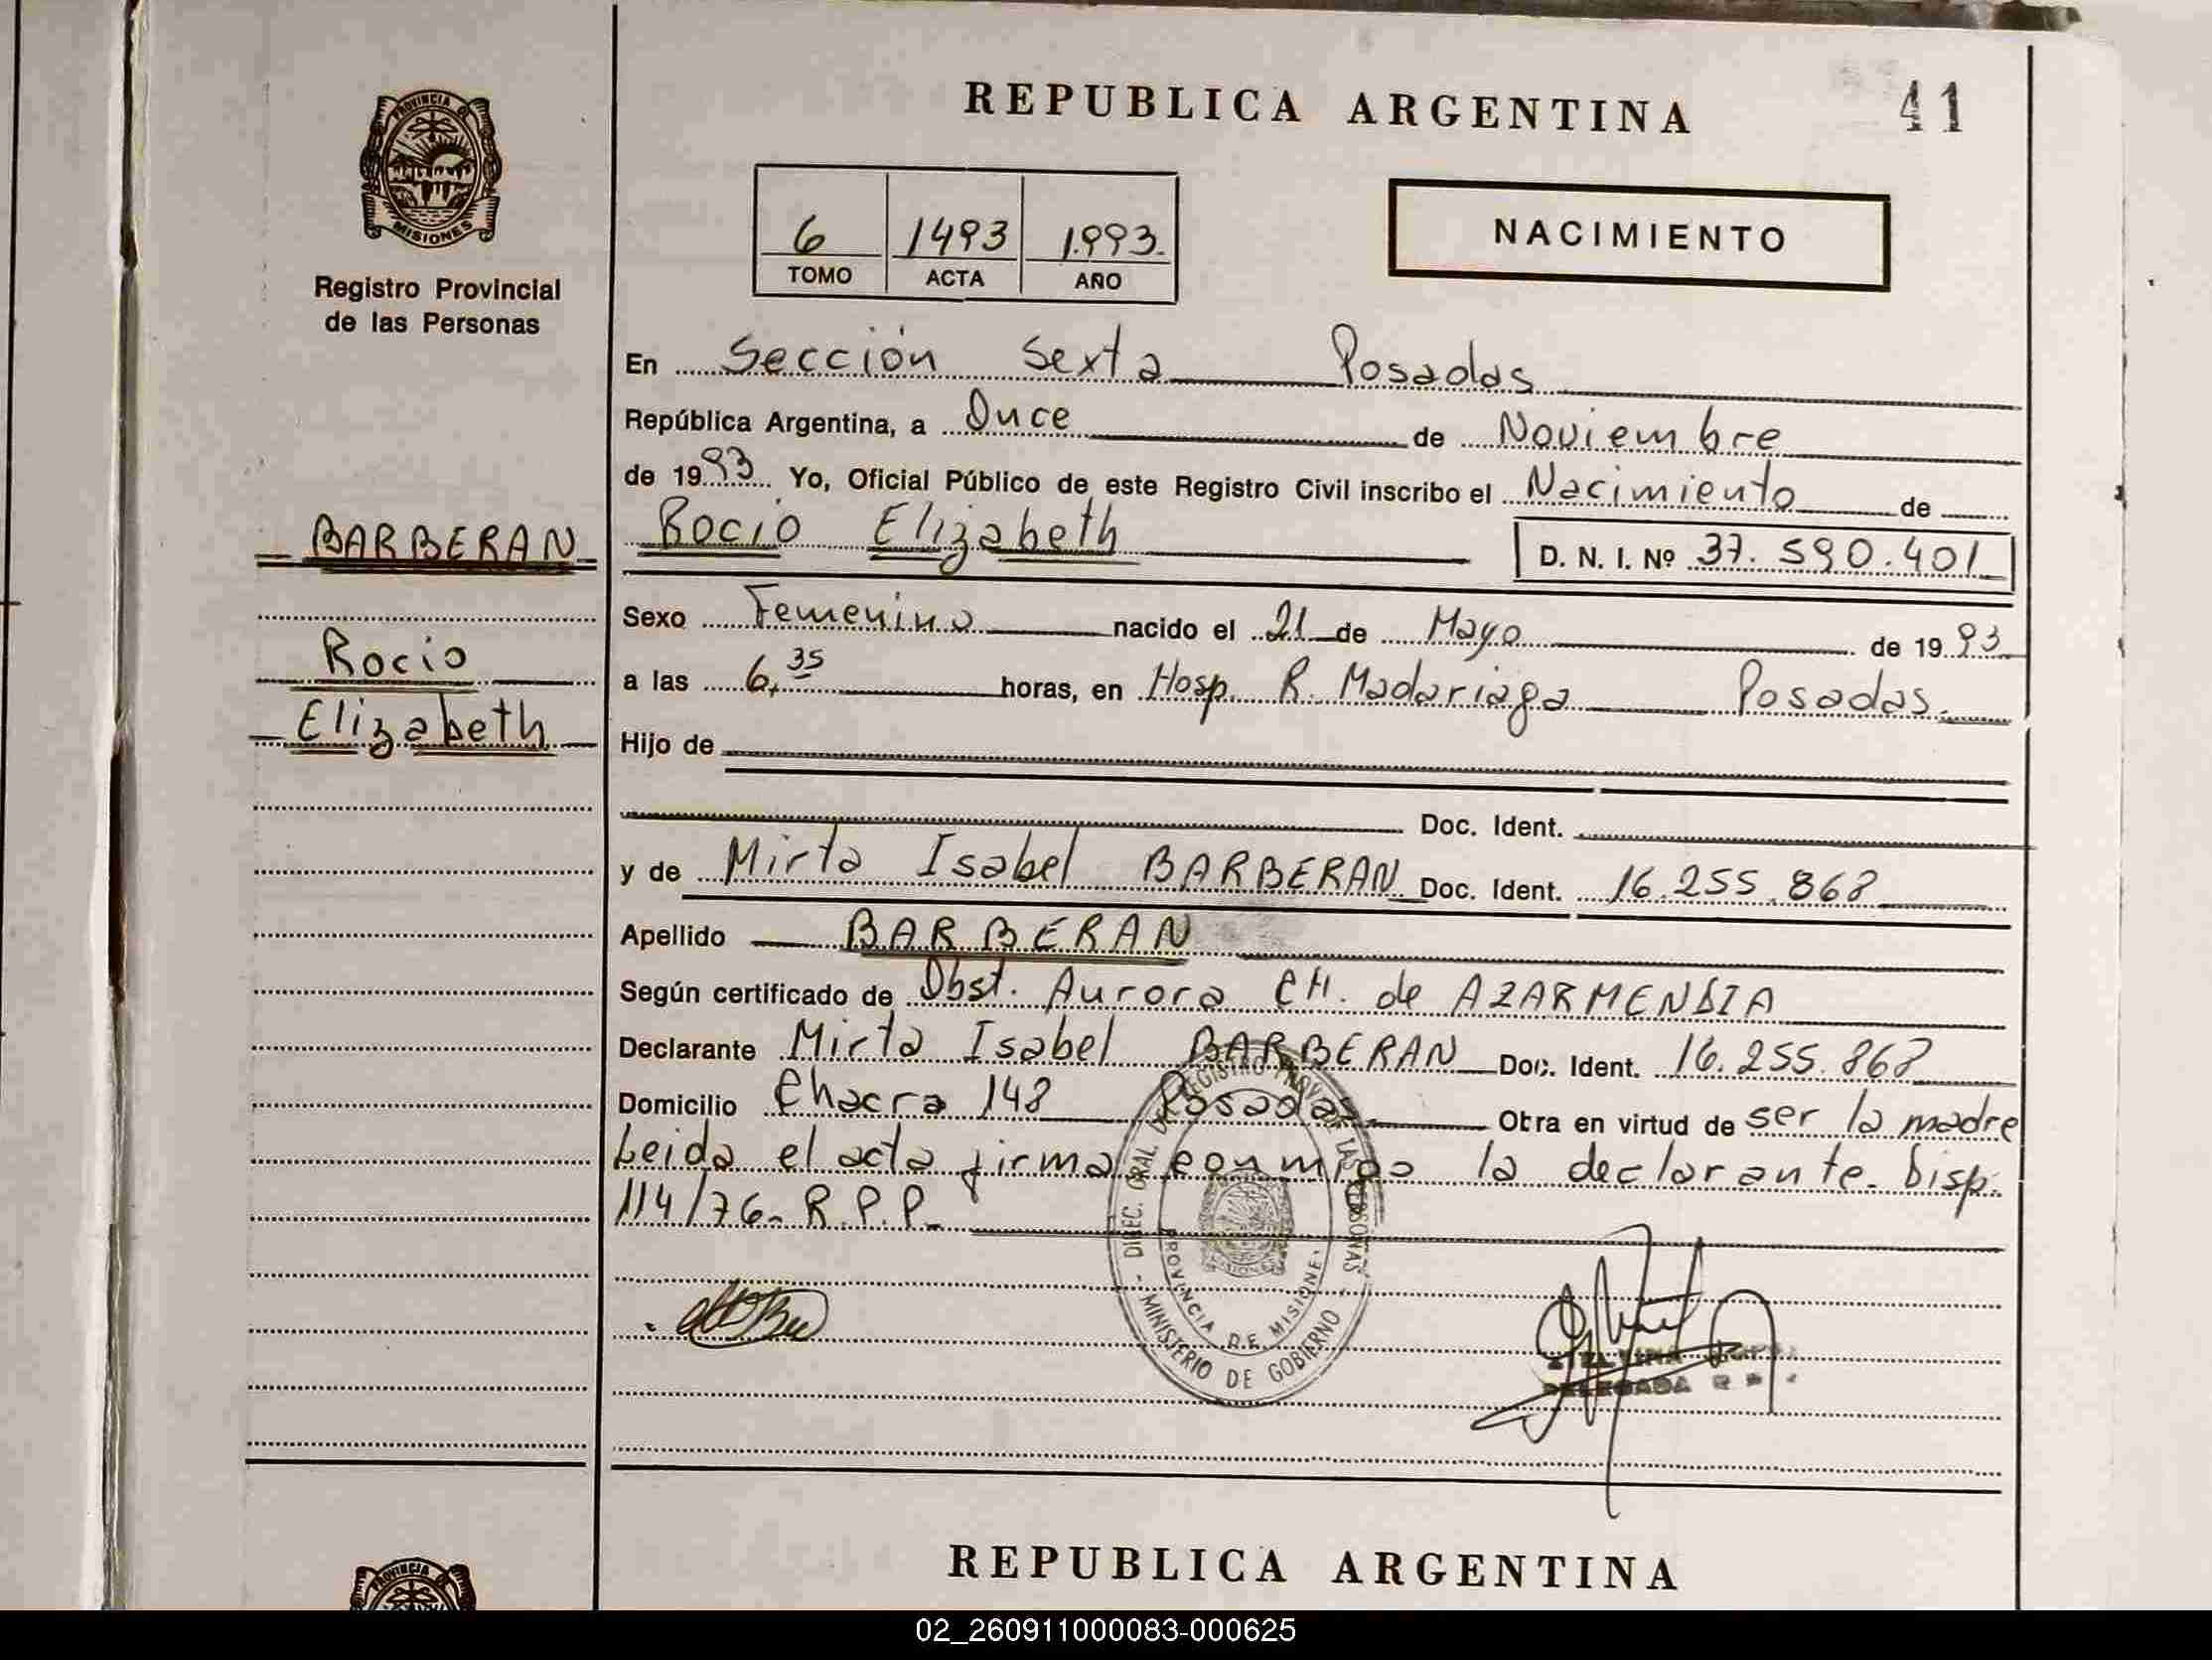 REPUBLICA ARGENTINA
41
PROVINCIA DE
MISIONES
Registro Provincial
de las Personas
6 1493 1.993.
TOMO ACTA AÑO
NACIMIENTO
En Sección Sexta Posadas
República Argentina, a Once de Noviembre
de 1993. Yo, Oficial Público de este Registro Civil inscribo el Nacimiento de
BARBERAN
Rocio
Elizabeth
Rocio Elizabeth D. N. I. Nº 37.590.401
Sexo Femenino nacido el 21 de Mayo de 1993
a las 6,35 horas, en Hosp. R. Madariaga Posadas.
Hijo de
Doc. Ident.
y de Mirta Isabel BARBERAN Doc. Ident.
Apellido BARBERAN
Según certificado de Obst. Aurora CH. de AZARMENDIA
Declarante Mirta Isabel BARBERAN Doc. Ident.
Domicilio Chacra 148 Posadas Otra en virtud de ser la madre
Leida el acta firma conmigo la declarante. Disp.
114/76- R.P.P.
DIREC. GRAL. DE REGISTRO PROV. DE LAS PERSONAS
PROVINCIA DE MISIONES
MINISTERIO DE GOBIERNO
DELEGADA
REPUBLICA ARGENTINA
PROVINCIA
02_260911000083-000625